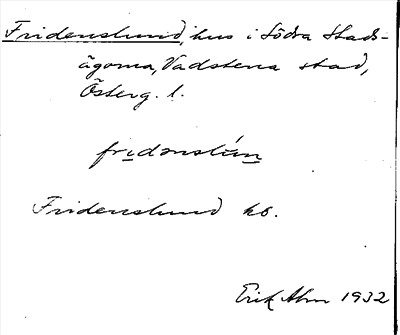 Fridenslund, hus i Södra Stads-
ägorna, Vadstena stad,
Österg. l.
fridənslún
Fridenslund kb.
Erik Alm 1932